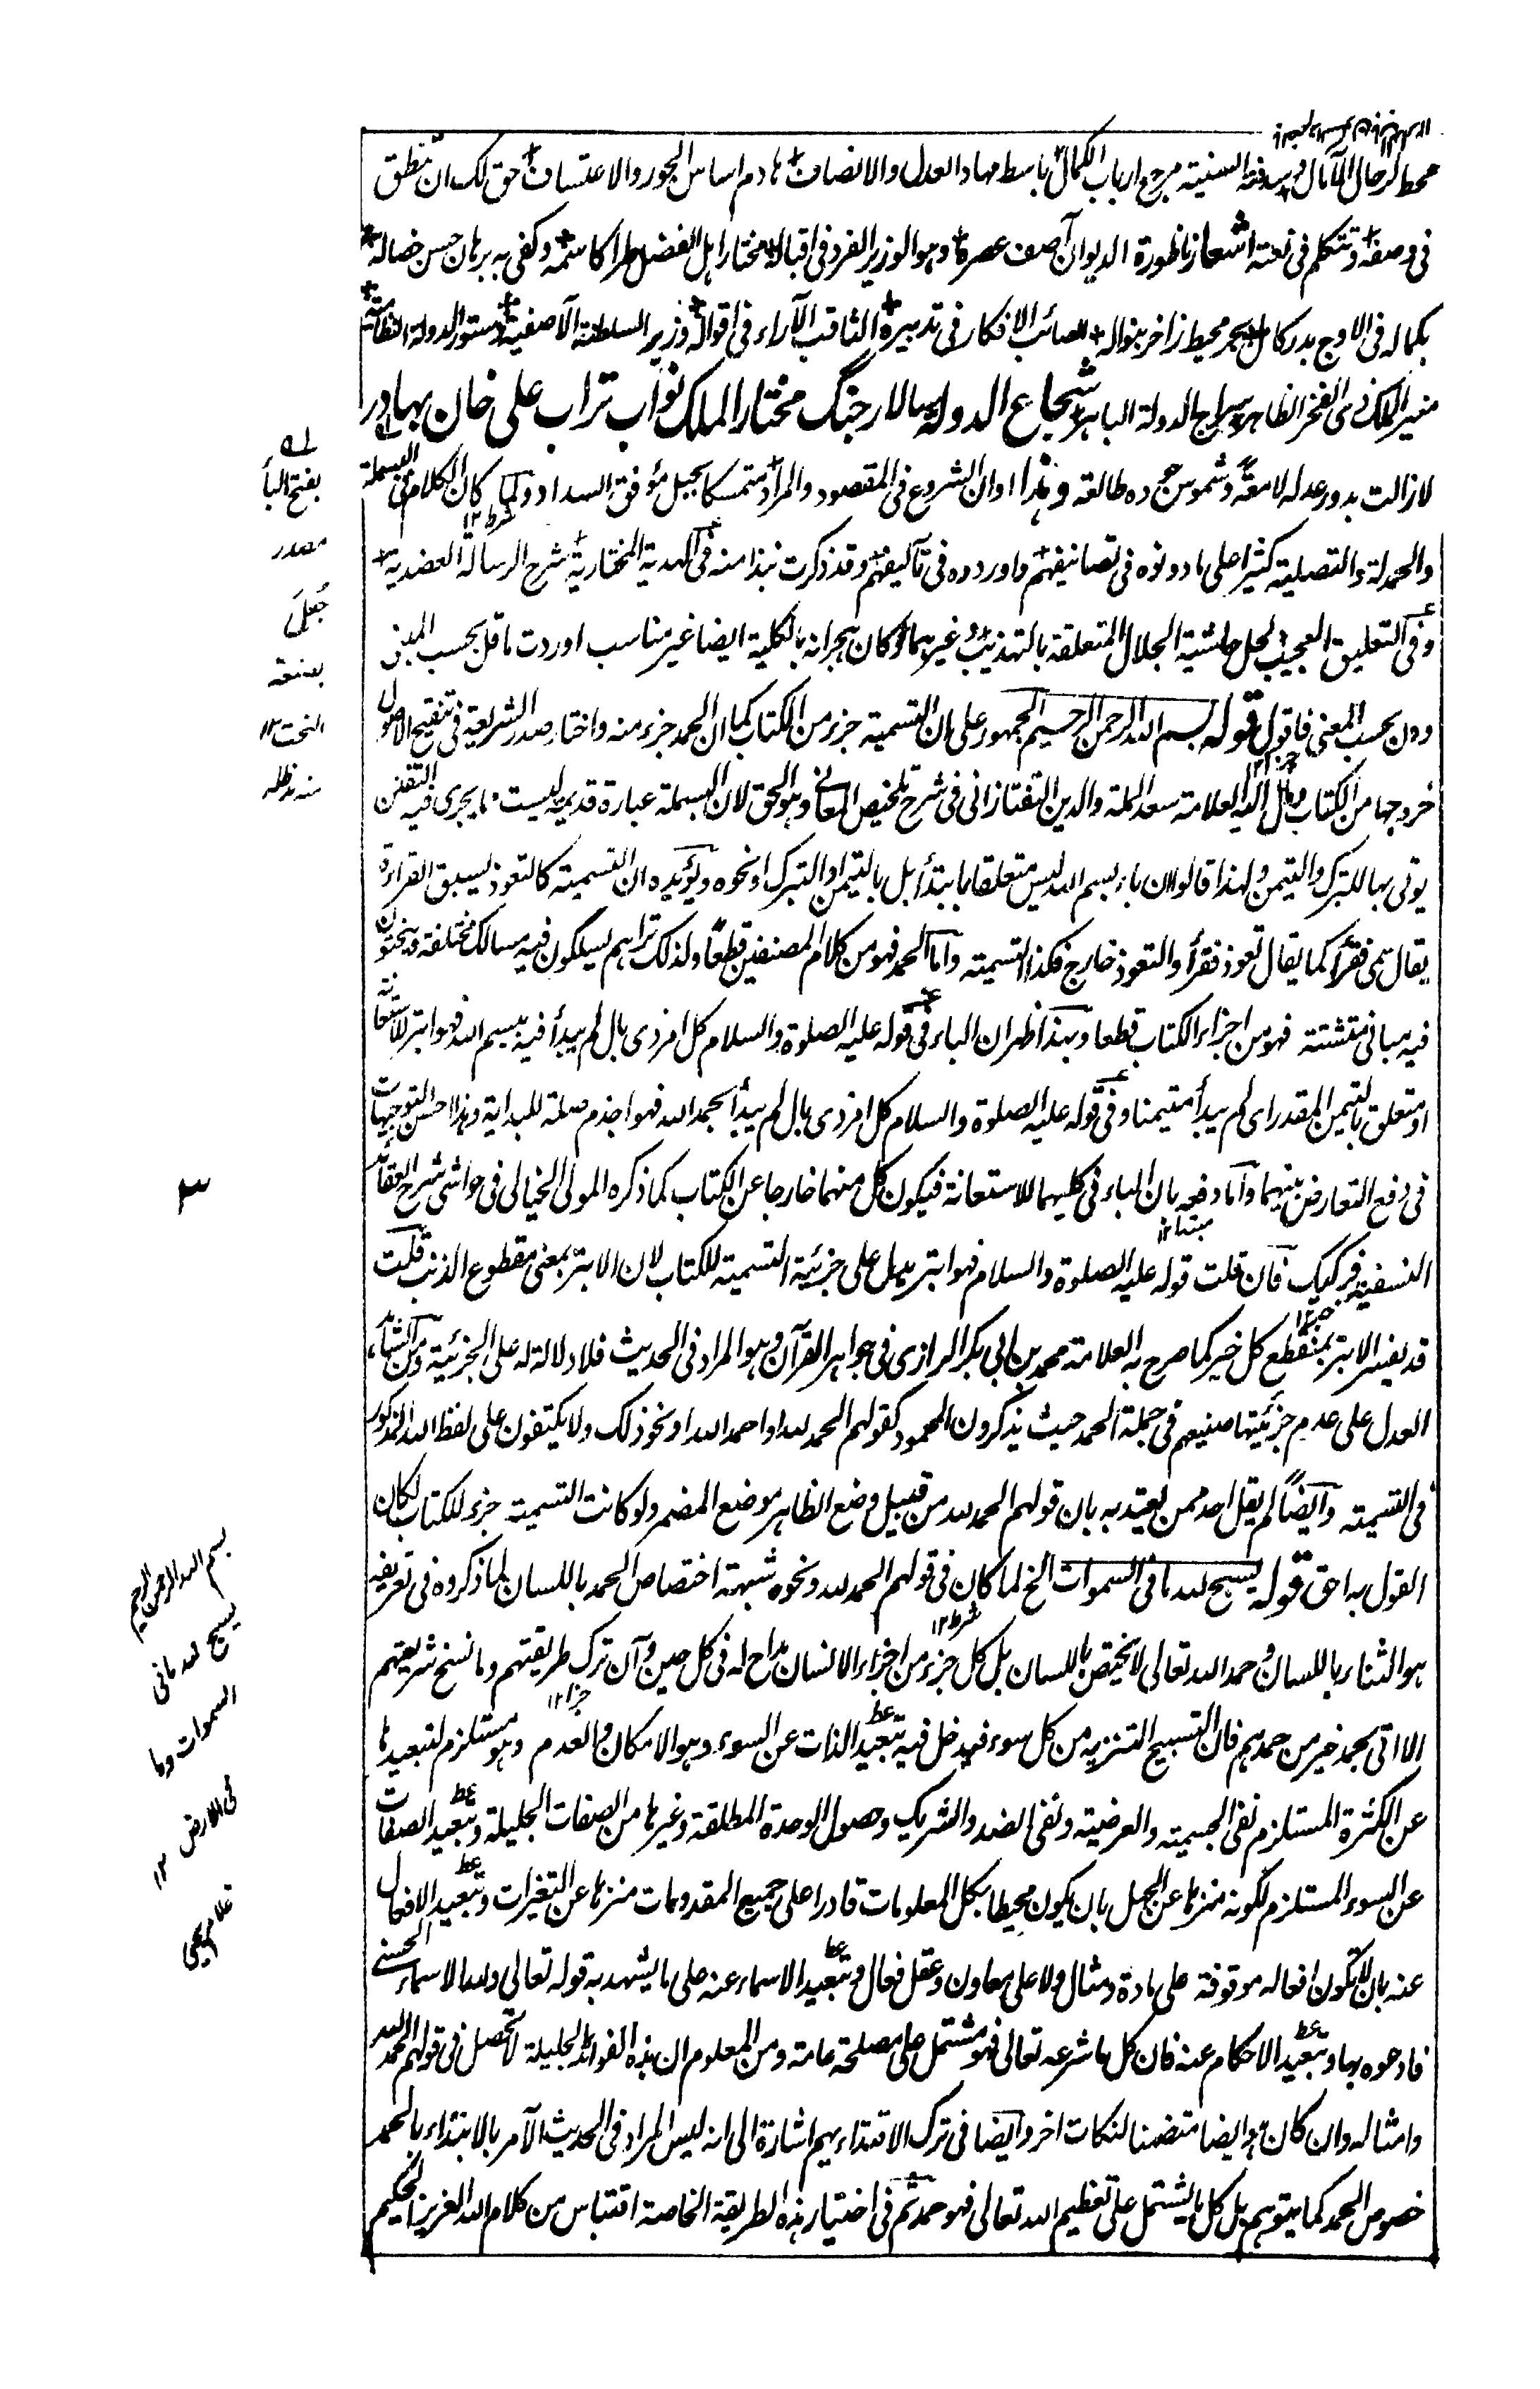 محط لرحال الآمال وسدته السنية مرجع ارباب الكمال باسط مهاد العدل والانصاف هادم اساس الجور والاعتساف حق لك ان تنطق
فى وصفه وتتكلم فى نعته اشعار ناظورة الديوان آصف عصره وهو الوزير الفرد فى اقباله مختار اهل الفضل طرا كاسمه وكفى به برهان حسن خصاله
بكماله فى الاوج بدر كامل بحر محيط زاخر بنواله الصائب الافكار فى تدبيره الثاقب الآراء فى اقواله وزير السلطنة الآصفية دستور الدولة النظامية
منير الملك ذى الفخر الظاهر سراج الدولة الباهر شجاع الدولة سالار جنگ مختار الملك نواب تراب على خان بهادر
لازالت بدور عدله لامعة وشموس جوده طالعة وهذا اوان الشروع فى المقصود والمراد متمسكا بحبل مؤفق السداد ولما كان الكلام فى البسملة
والحمدلة والتصلية كثيرا على ما دونوه فى تصانيفهم واوردوه فى تآليفهم وقد ذكرت نبذا منه فى الهدية المختارية شرح الرسالة العضدية
وفى التعليق العجيب لحل حاشية الجلال المتعلقة بالتهذيب وغيرهما وكان هجرانه بالكلية ايضا غير مناسب اوردت ما قل بحسب المبنى
ودل بحسب المعنى فاقول قوله بسم الله الرحمن الرحيم الجمهور على ان التسمية جزء من الكتاب كما ان الحمد جزء منه واختار صدر الشريعة فى تنقيح الاصول
خروجها من الكتاب ومال اليه العلامة سعد الملة والدين التفتازانى فى شرح تلخيص المعانى وهو الحق لان البسملة عبارة قديمة ليست مما يجرى فيه التفنن
يوتى بها للتبرك والتيمن ولهذا قالوا ان باء بسم الله ليس متعلقا بابتدأ بل بالتيمن او التبرك او نحوه ويؤيده ان التسمية كالتعوذ يسبق القراءة
يقال سمى فقرأ كما يقال تعوذ فقرأ والتعوذ خارج فكذا التسمية واما الحمد فهو من كلام المصنفين قطعا ولذلك تراهم يسلكون فيه مسالك مختلفة وينحتون
فيه مبانى متشتتة فهو من اجزاء الكتاب قطعا وبهذا ظهر ان الباء فى قوله عليه الصلوة والسلام كل امر ذى بال لم يبدأ فيه ببسم الله فهو ابتر للاستعانة
او متعلق بالتيمن المقدر اى لم يبدأ متيمنا وفى قوله عليه الصلوة والسلام كل امر ذى بال لم يبدأ بحمد الله فهو اجذم صلة للبداية وهذا احسن التوجيهات
فى دفع التعارض بينهما واما دفعه بان الباء فى كليهما للاستعانة فيكون كل منهما خارجا عن الكتاب كما ذكره المولى الخيالى فى حواشى شرح العقائد
النسفية فركيك فان قلت قوله عليه الصلوة والسلام فهو ابتر يدل على جزئية التسمية للكتاب لان الابتر بمعنى مقطوع الذنب قلت
قد يفسر الابتر بمنقطع كل خير كما صرح به العلامة محمد بن ابى بكر الرازى فى جواهر القرآن وهو المراد فى الحديث فلا دلالة له على الجزئية ومن الشاهد
العدل على عدم جزئيتها صنيعهم فى جملة الحمد حيث يذكرون المحمود كقولهم الحمد لله او احمد الله او نحو ذلك ولا يكتفون على لفظ الله المذكور
فى التسمية وايضا لم يقل احد ممن يعتد به بان قولهم الحمد لله من قبيل وضع الظاهر موضع المضمر ولو كانت التسمية جزء للكتاب لكان
القول به احق قوله يسبح لله ما فى السموات الخ لما كان فى قولهم الحمد لله ونحوه شبهة اختصاص الحمد باللسان لما ذكروه فى تعريفه
هو الثناء باللسان وحمد الله تعالى لا يختص باللسان بل كل جزء من اجزاء الانسان مداح له فى كل حين وآن ترك طريقتهم وما نسخ شريعتهم
الا اتى بحمد خير من حمدهم فان التسبيح التنزيه من كل سوء فيدخل فيه تبعيد الذات عن السوء وهو الامكان والعدم وهو مستلزم لتبعيدها
عن الكثرة المستلزم نفى الجسمية والعرضية ونفى الضد والشريك وحصول الوحدة المطلقة وغيرها من الصفات الجليلة وتبعيد الصفات
عن السوء المستلزم لكونه منزها عن الجهل بان يكون محيطا بكل المعلومات قادرا على جميع المقدومات منزها عن التغيرات وتبعيد الافعال
عنه بان لا تكون افعاله موقوفة على مادة ومثال ولا على معاون وعقل فعال وتبعيد الاسماء عنه على ما يشهد به قوله تعالى ولله الاسماء الحسنى
فادعوه بها وتبعيد الاحكام عنه فان كل ما شرعه تعالى فهو مشتمل على مصلحة عامة ومن المعلوم ان هذه الفوائد الجليلة لا تحصل فى قولهم الحمد لله
وامثاله وان كان هو ايضا متضمنا لنكات اخر وايضا فى ترك الاقتداء بهم اشارة الى انه ليس المراد فى الحديث الآمر بالابتداء بالحمد
خصوص الحمد كما يتوهم بل كل ما يشتمل على تعظيم الله تعالى فهو حمد ثم فى اختيار هذه الطريقة الخاصة اقتباس من كلام الله العزيز الحكيم
له
بفتح البأ
مصدر
جعل
بصنعة
النحت ١٢
منه مدظله
٣
بسم الله الرحمن الرحيم
يسبح لله ما فى
السموات وما
فى الارض ١٢
غلام يحيى